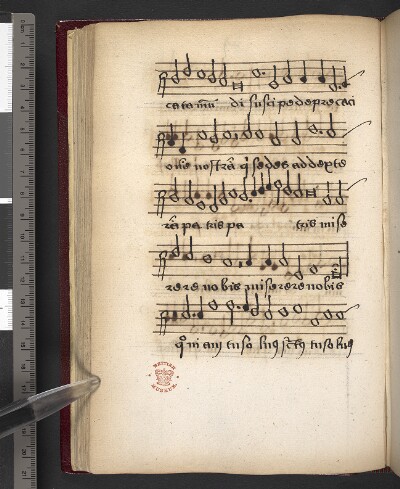 cata mūdi suscipe deprecaci
onē nostrā q' sedes ad dexte
rā pa tris pa tris mise
rere nobis miserere nobis
qm̄ tu solus scūs tu solus
BRITISH MUSEUM